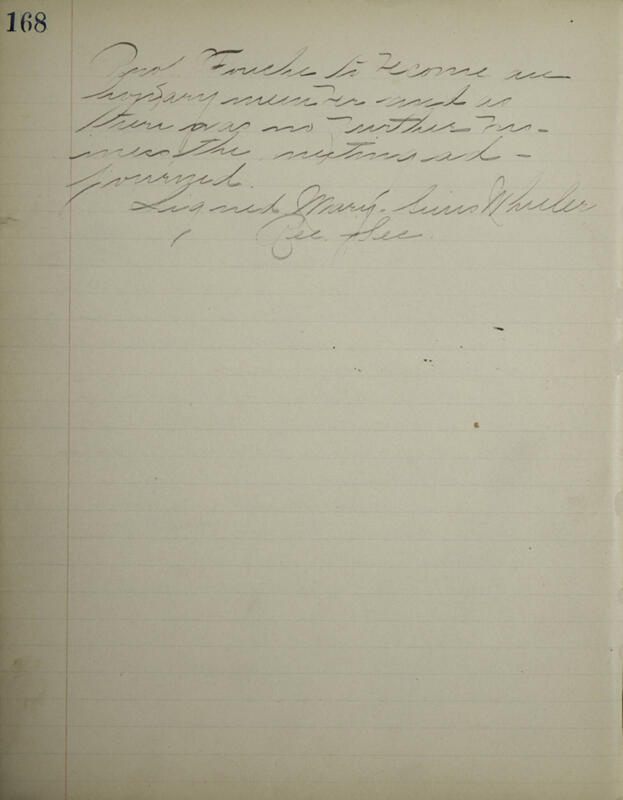 168
Prof. Fouche to become an
honary member and as
there was no further bus-
iness the meeting ad-
journed.
Signed Mary Sims Wheeler
Rec. Sec.